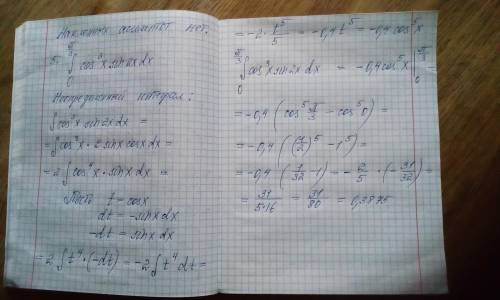 Наклонных асимптот нет.
5. ∫₀^(π/3) cos³x sin2x dx
Неопределенный интеграл:
∫cos³x sin2x dx =
= ∫cos³x · 2 sinx cosx dx =
= 2 ∫cos⁴x · sinx dx =
Пусть t = cosx
dt = -sinx dx
-dt = sinx dx
= 2 ∫t⁴ · (-dt) = -2 ∫t⁴ dt =
= -2 · t⁵/5 = -0,4 t⁵ = -0,4 cos⁵x
∫₀^(π/3) cos³x sin2x dx = -0,4 cos⁵x |₀^(π/3)
= -0,4 (cos⁵ π/3 - cos⁵0) =
= -0,4 ((1/2)⁵ - 1⁵) =
= -0,4 (1/32 - 1) = -2/5 · (-31/32) =
= 31/(5·16) = 31/80 = 0,3875